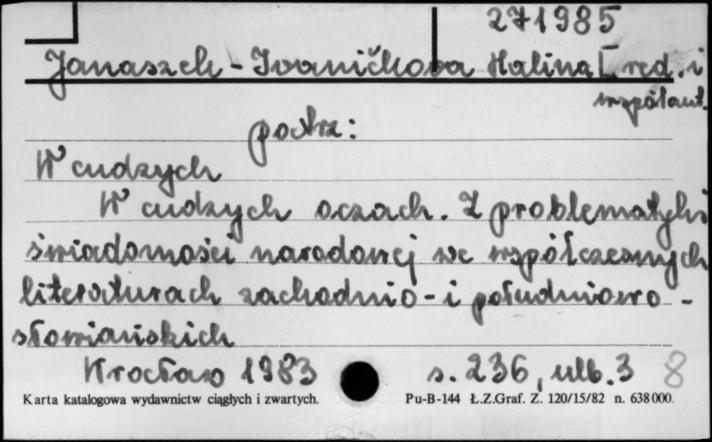 271985
Janaszek-Ivaničkova Halina [red. i
współaut.
patrz:
W cudzych
W cudzych oczach. Z problematyki
świadomości narodowej we współczesnych
literaturach zachodnio- i południowo-
słowiańskich
Wrocław 1983 s. 236, ulb. 3 8
Karta katalogowa wydawnictw ciągłych i zwartych. Pu-B-144 Ł.Z.Graf. Z. 120/15/82 n. 638000.